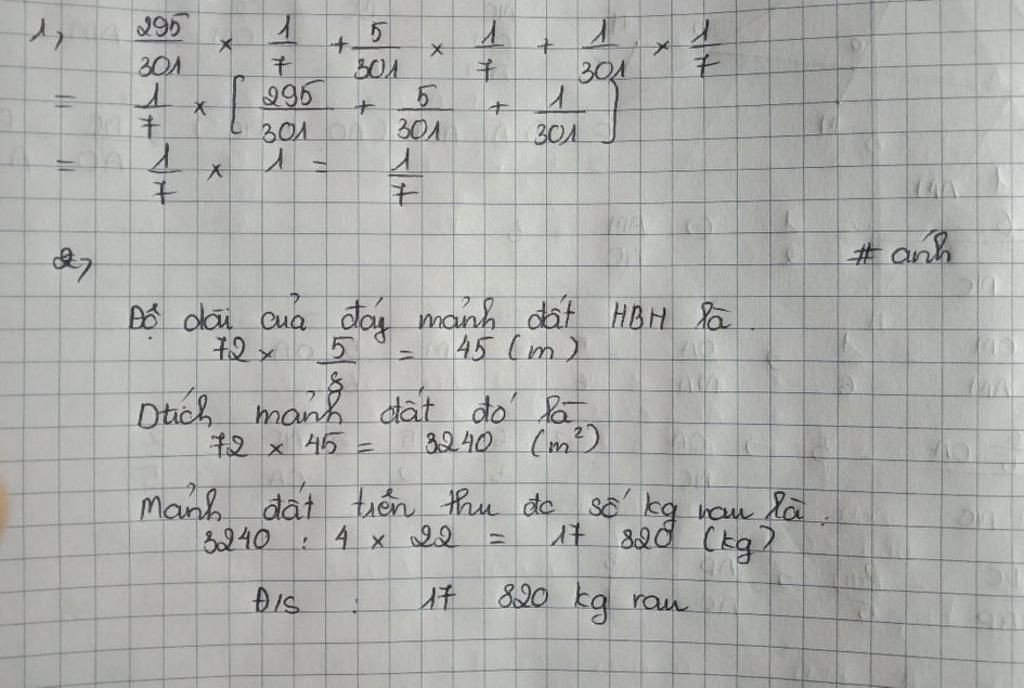 1, 295/301 × 1/7 + 5/301 × 1/7 + 1/301 × 1/7
= 1/7 × [ 295/301 + 5/301 + 1/301 ]
= 1/7 × 1 = 1/7
# ánh
2,
Độ dài của đáy mảnh đất HBH là
72 × 5/8 = 45 (m)
Dtích mảnh đất đó là
72 × 45 = 3240 (m²)
Mảnh đất trên thu đc số kg rau là :
3240 : 4 × 22 = 17 820 (kg)
Đ/S : 17 820 kg rau